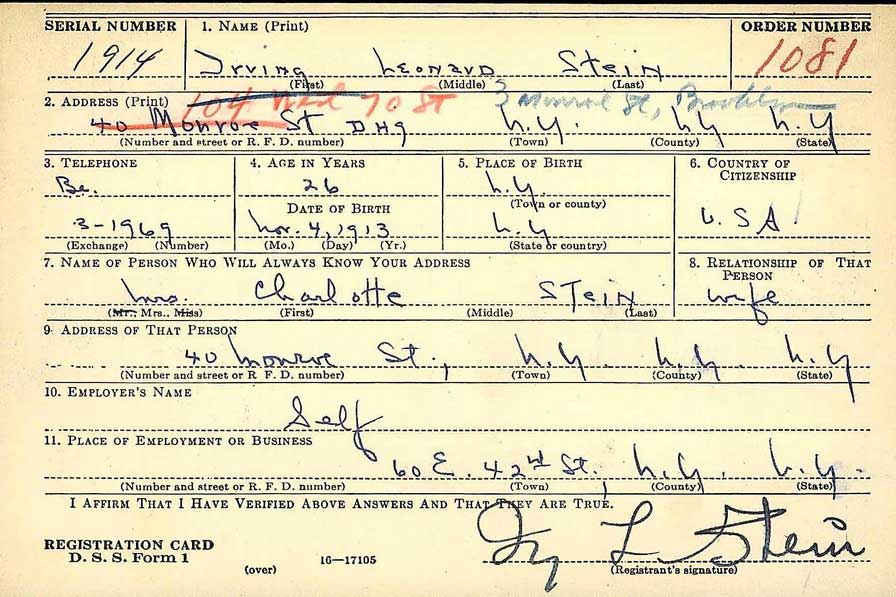 SERIAL NUMBER 1. NAME (Print) ORDER NUMBER
1914 Irving Leonard Stein 1081
(First) (Middle) (Last)
2. ADDRESS (Print) 104 70 St 3 Monroe St, Brooklyn
40 Monroe St DH9 N.Y. NY N.Y
(Number and street or R. F. D. number) (Town) (County) (State)
3. TELEPHONE 4. AGE IN YEARS 5. PLACE OF BIRTH 6. COUNTRY OF CITIZENSHIP
Be. 26 N.Y.
(Town or county)
DATE OF BIRTH
3-1969 Nov. 4, 1913 N.Y U.S.A
(Exchange) (Number) (Mo.) (Day) (Yr.) (State or country)
7. NAME OF PERSON WHO WILL ALWAYS KNOW YOUR ADDRESS 8. RELATIONSHIP OF THAT PERSON
Mrs. Charlotte Stein wife
(Mr., Mrs., Miss) (First) (Middle) (Last)
9. ADDRESS OF THAT PERSON
40 Monroe St., N.Y. N.Y. N.Y
(Number and street or R. F. D. number) (Town) (County) (State)
10. EMPLOYER'S NAME
Self
11. PLACE OF EMPLOYMENT OR BUSINESS
60 E. 42nd St., N.Y. N.Y.
(Number and street or R. F. D. number) (Town) (County) (State)
I AFFIRM THAT I HAVE VERIFIED ABOVE ANSWERS AND THAT THEY ARE TRUE.
REGISTRATION CARD
D. S. S. Form 1 Irv L. Stein
(over) 16—17105 (Registrant's signature)